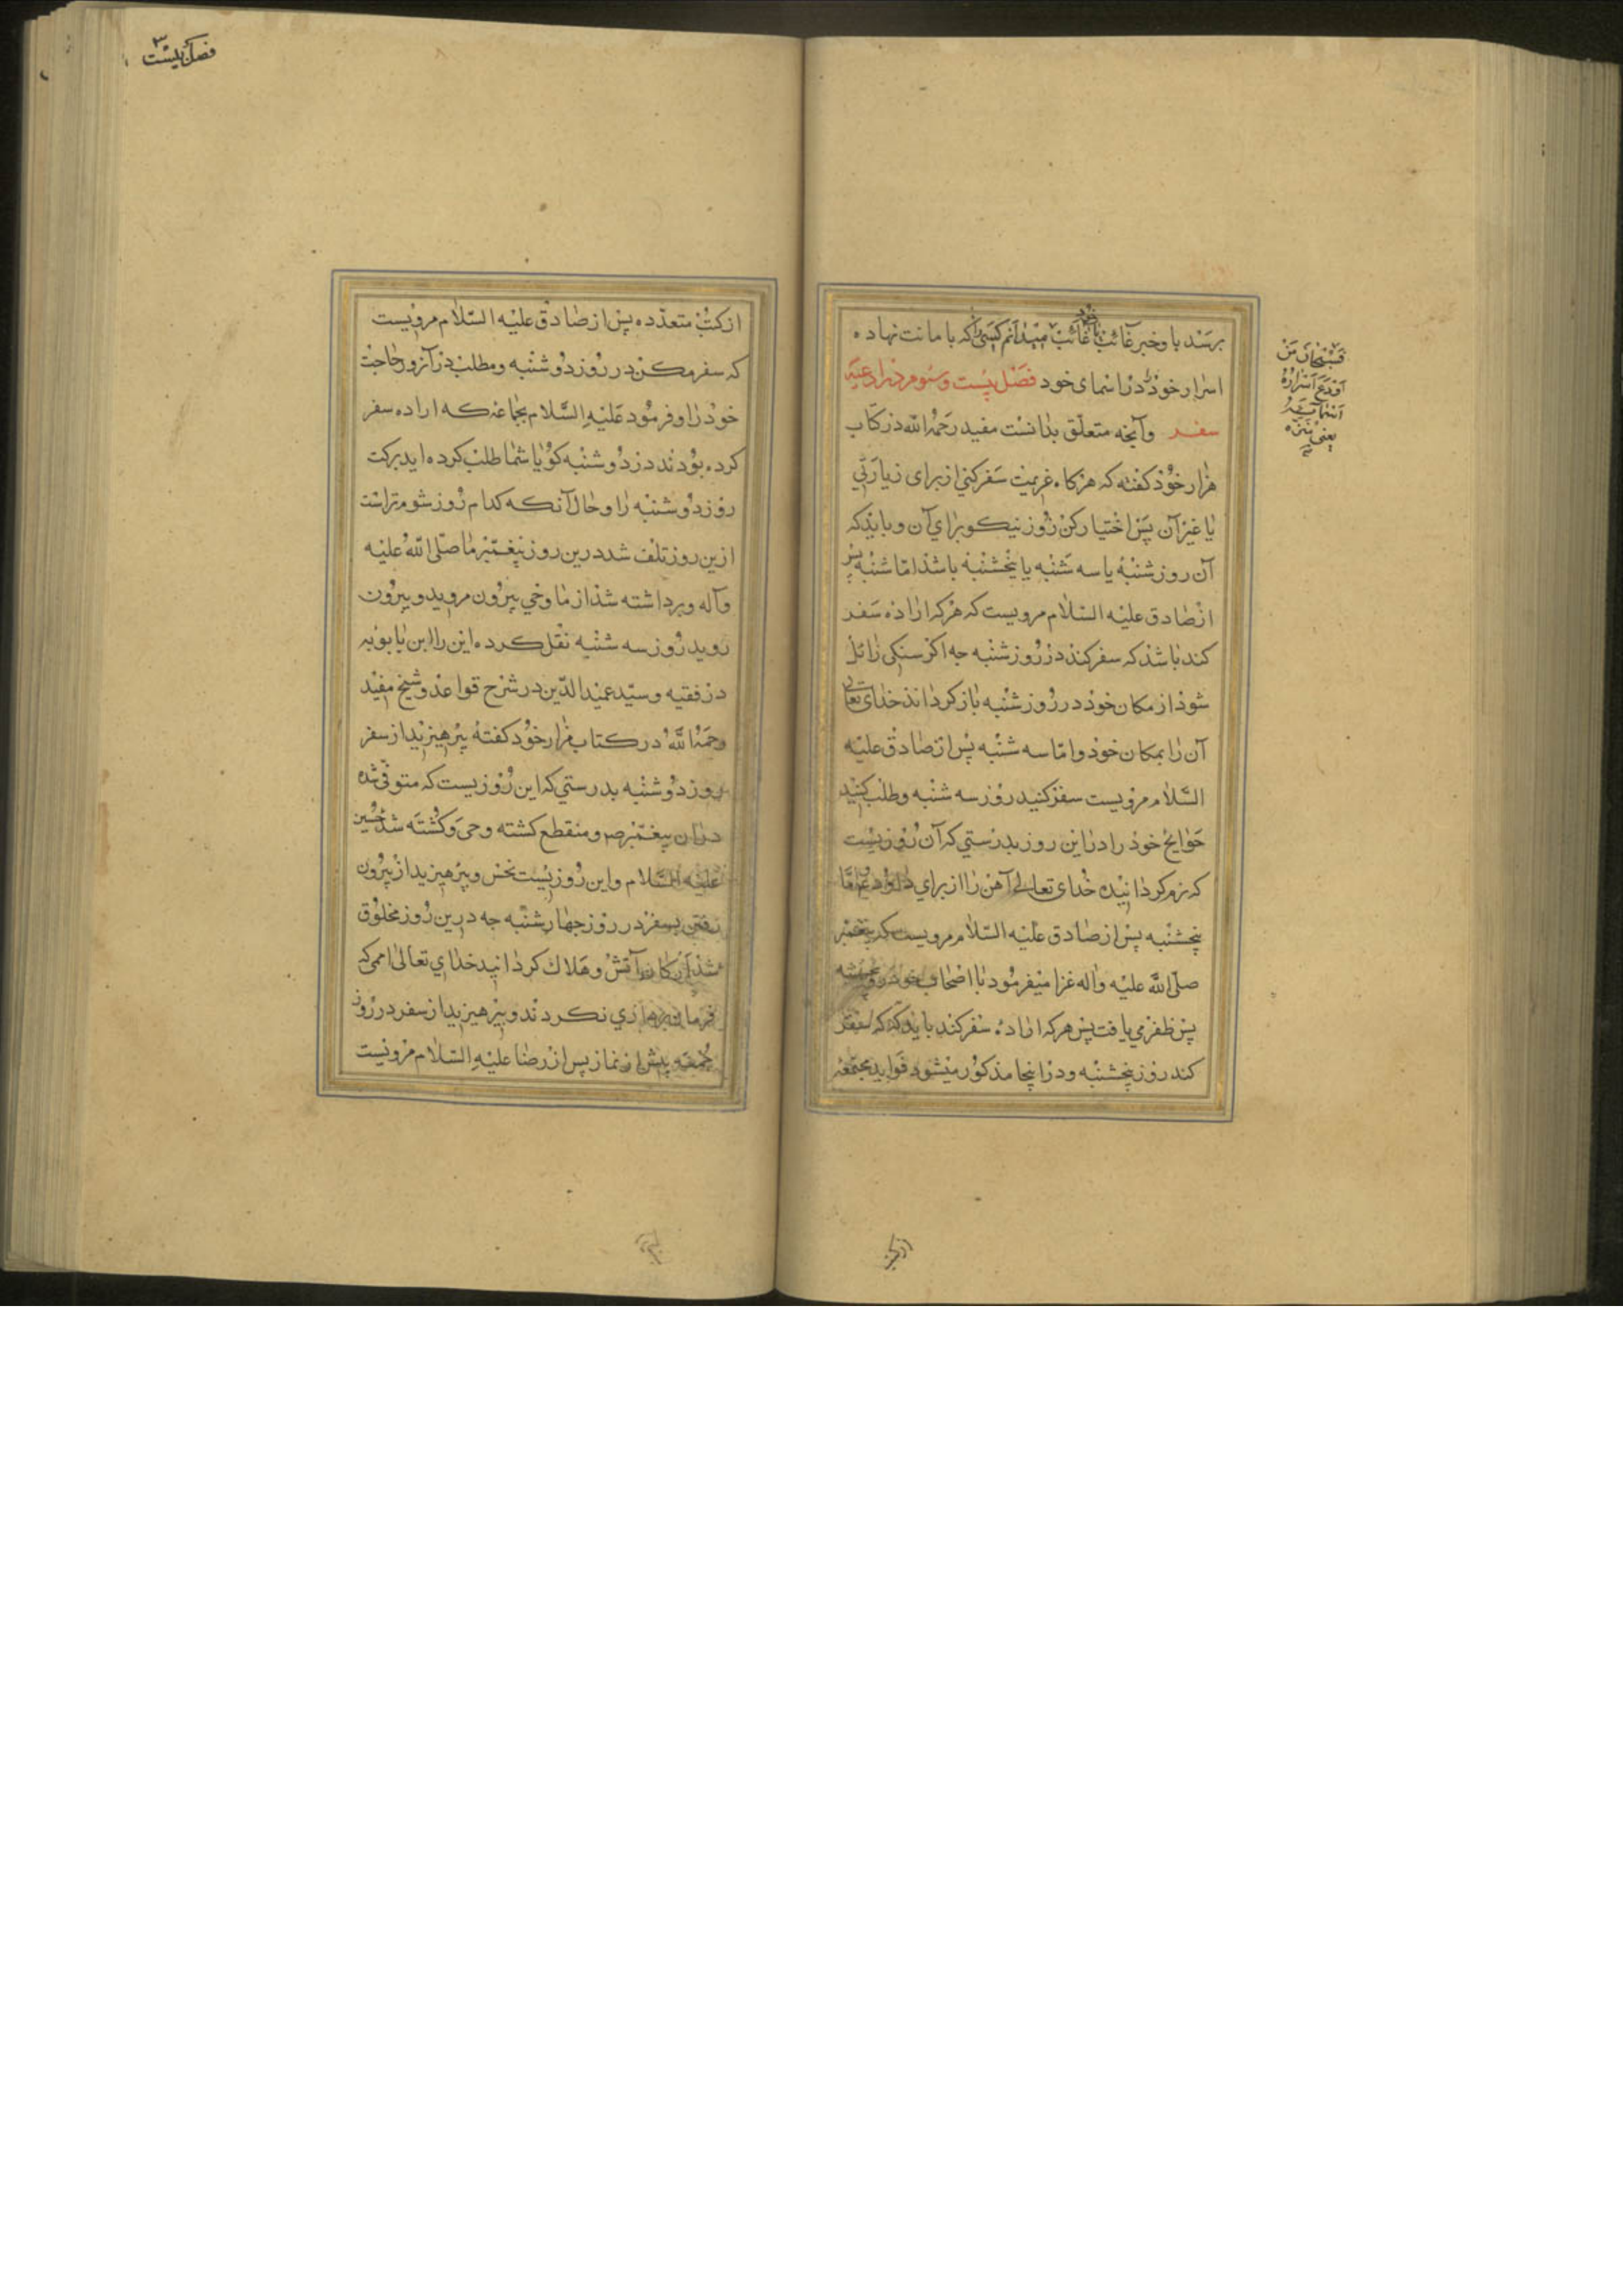 برسد باو خبر غائب یا غائب میدانم کسی را که بامانت نهاده
اسرار خود را در اسمای خود فصل بیست و سوم در ادعیه
سفر وآنچه متعلق بدانست مفید رحمه الله در کتاب
مزار خود کفته که هرکاه عزیمت سفر کنی از برای زیارتی
یا غیر آن پس اختیار کن روز نیکو برای آن و باید که
آن روز شنبه یا سه شنبه یا پنجشنبه باشد اما شنبه پس
از صادق علیه السلام مرویست که هرکه اراده سفر
کند باشد که سفر کند در روز شنبه چه اکر سنکی زائل
شود از مکان خود در روز شنبه باز کرداند خدای تعالی
آن را بمکان خود و اما سه شنبه پس از صادق علیه
السلام مرویست سفر کنید روز سه شنبه وطلب کنید
حوایج خود را در این روز بدرستی که آن روزیست
که نرم کردانیده خدای تعالی آهن را از برای داود ع اما
پنجشنبه پس از صادق علیه السلام مرویست که پیغمبر
صلی الله علیه واله غزا میفرمود با اصحاب خود در پنجشنبه
پس ظفر می یافت پس هرکه اراده سفر کند باید که سفر
کند روز پنجشنبه ودر اینجا مذکور میشود فواید مجتمعه
فسبحان من
اودع اسراره
اسمائه
یعنی
فصل بیست ۳
از کتب متعدده پس از صادق علیه السلام مرویست
که سفر مکن در روز دوشنبه ومطلب در آنروز حاجت
خود را وفرمود علیه السلام بجماعتی که اراده سفر
کرده بودند در دوشنبه کویا شما طلب کرده اید برکت
روز دوشنبه را وحال آنکه کدام روز شوم تر است
ازین روز تلف شد درین روز پیغمبر ما صلی الله علیه
وآله وبرداشته شد از ما وحی بیرون مروید وبیرون
روید روز سه شنبه نقل کرده این را ابن بابویه
در فقیه وسید عمید الدین در شرح قواعد وشیخ مفید
رحمه الله در کتاب مزار خود کفته پرهیزید از سفر
روز دوشنبه بدرستی که این روزیست که متوفی شده
دران پیغمبر ص ومنقطع کشته وحی وکشته شد حسین
علیه السلام واین روزیست نحس وپرهیزید از بیرون
رفتن بسفر در روز چهارشنبه چه درین روز مخلوق
شد ارکان آتش وهلاک کردانید خدای تعالی اممی که
فرمانبرداری نکردند وپرهیزید از سفر در روز
جمعه پیش از نماز پس از رضا علیه السلام مرویست